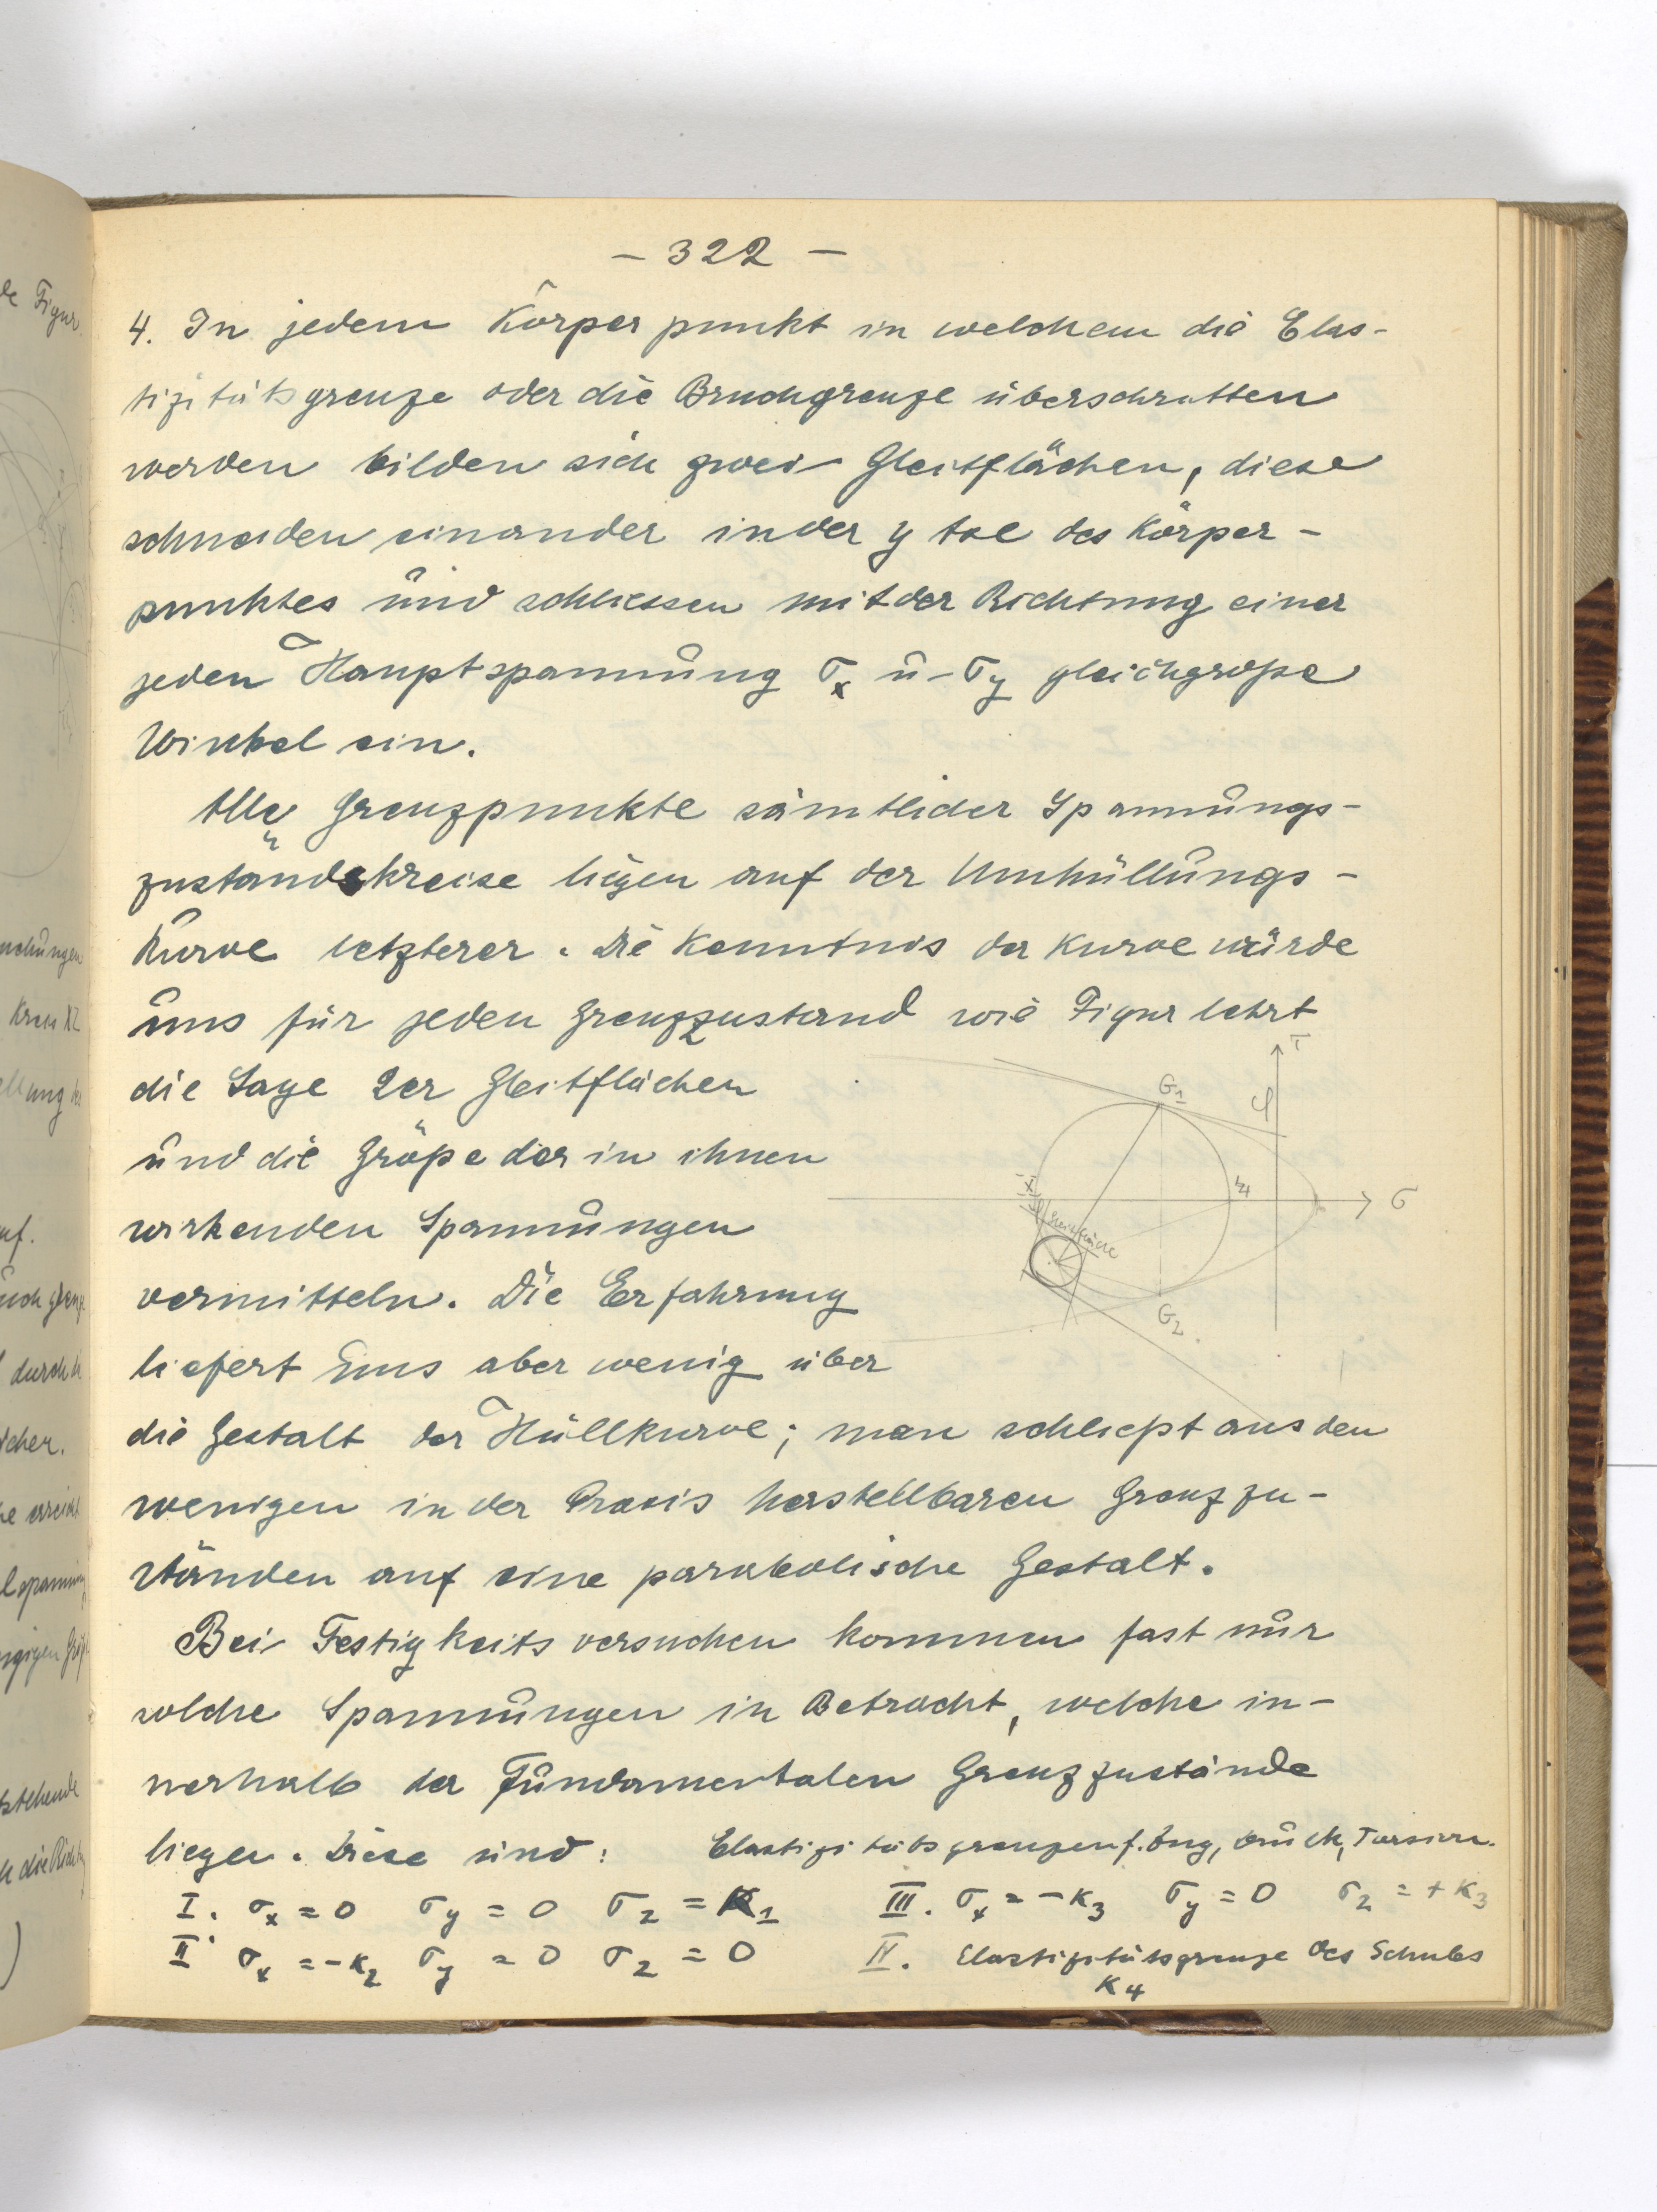 – 322 –
4. In jedem Körperpunkt in welchem die Elas-
tizitätsgrenze oder die Bruchgrenze überschritten
werden bilden sich zwei Gleitflächen, diese
schneiden einander in der y Axe des Körper-
punktes und schliessen mit der Richtung einer
jeden Hauptspannung σx u σy gleichgroße
Winkel ein.
Alle Grenzpunkte sämtlicher Spannungs-
zustandskreise liegen auf der Umhüllungs-
kurve letzterer. Die Kenntnis der Kurve würde
uns für jeden Grenzzustand wie Figur lehrt
die Lage der Gleitflächen
und die Größe der in ihnen
wirkenden Spannungen
vermitteln. Die Erfahrung
liefert uns aber wenig über
die Gestalt der Hüllkurve; man schließt aus den
wenigen in der Praxis herstellbaren Grenzzu-
ständen auf eine parabolische Gestalt.
Bei Festigkeitsversuchen kommen fast nur
solche Spannungen in Betracht, welche in-
nerhalb der Fundamentalen Grenzzustände
liegen. Diese sind: Elastizitätsgrenzen f. Zug, Druck, Torsion.
I. σx = 0 σy = 0 σz = K1 III. σx = -K3 σy = 0 σz = +K3
II. σx = -K2 σy = 0 σz = 0 IV. Elastizitätsgrenze des Schubs
K4
τ
G1
φ
σ
G2